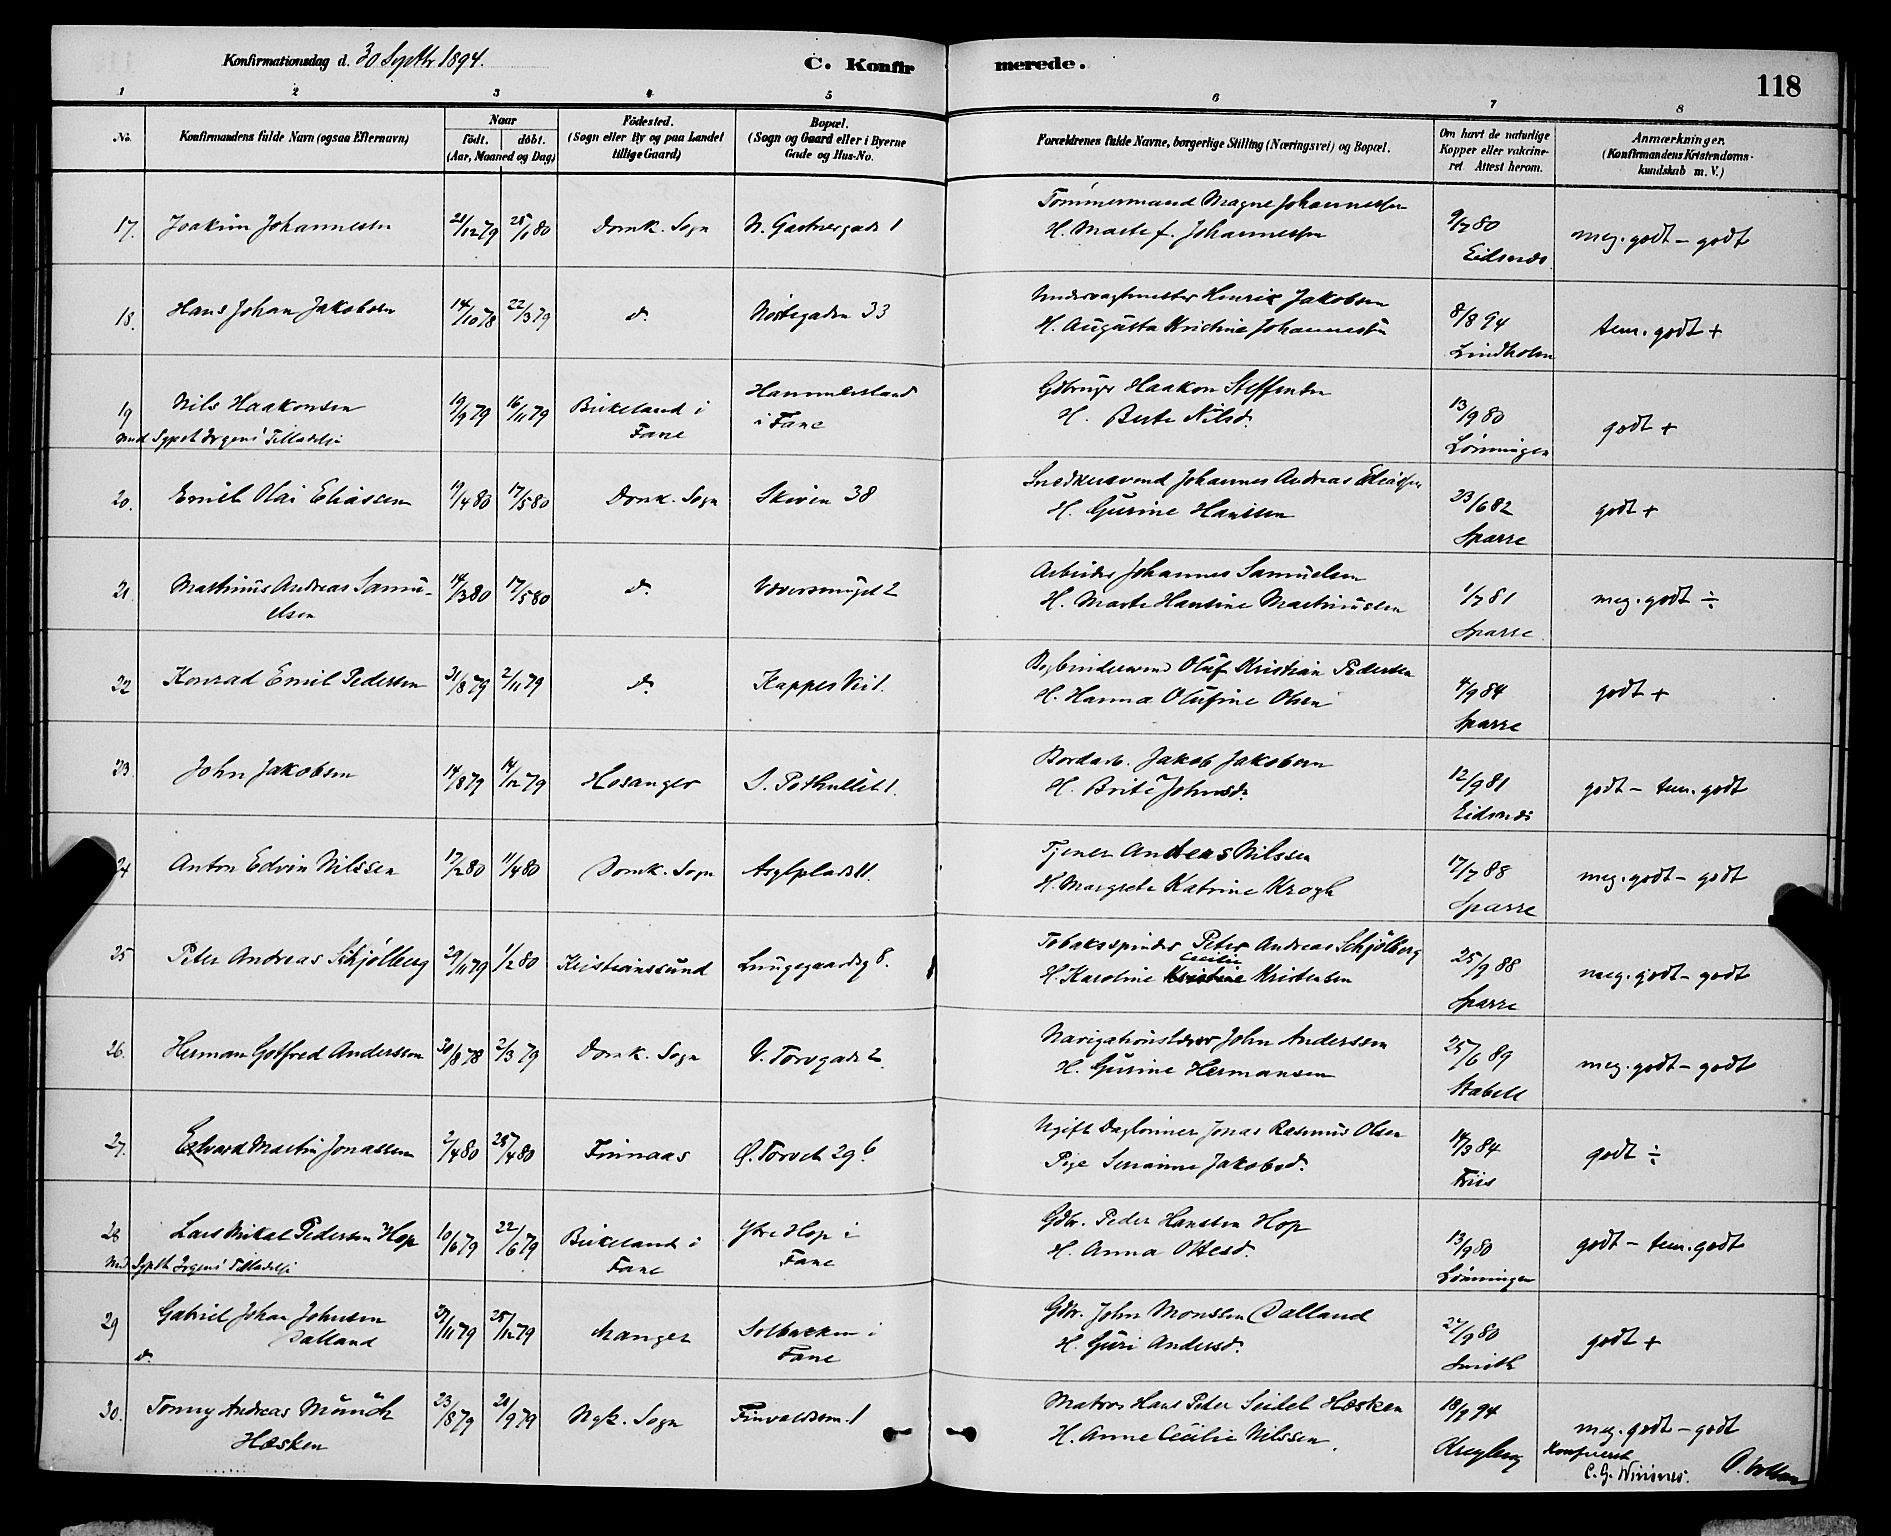 Konfirmationsdag d. 30 Septbr 1894.
C. Konfirmerede.
118
1 2 3 4 5 6 7 8
No.
Konfirmandens fulde Navn (ogsaa Efternavn)
Naar
födt. döbt.
(Aar, Maaned og Dag)
Födested.
(Sogn eller By og paa Landet
tillige Gaard)
Bopæl.
(Sogn og Gaard eller i Byerne
Gade og Hus-No.
Forældrenes fulde Navne, borgerlige Stilling (Næringsvei) og Bopæl.
Om havt de naturlige
Kopper eller vakcine-
ret Attest herom.
Anmærkninger.
(Konfirmandens Kristendoms-
kundskab m. V.)
17. Joakim Johannessen 21/12 79 25/1 80 Domk. Sogn N. Gartnergade 1
Tømmermand Magne Johannessen
H. Marte f. Johannessen
9/7 80
Eidsnæs
meg. godt - godt
18. Hans Johan Jakobsen 14/10 78 22/3 79 d. Nostegaden 33
Undervagtmester Henrik Jakobsen
H. Augusta Kristine Johannessen
8/8 94
Lindholm
tem. godt +
19 Nils Haakonsen 19/9 79 16/11 79 Birkeland i Fane
Hammersland i Fane
med Sgpst. Irgens' Tilladelse
Gdbruger Haakon Steffensen
H. Berte Nilsd.
13/9 80
Lønningen
godt +
20. Emil Olai Eliassen 19/4 80 17/5 80 Domk. Sogn Skiven 38
Snedkersvend Johannes Andreas Eliassen
H. Gurine Hansen
23/6 82
Sparre
godt +
21. Martinius Andreas Samuelsen 14/3 80 17/5 80 d. Væversmuget 2
Arbeider Johannes Samuelsen
H. Marte Hansine Martinussen
1/7 81
Sparre
meg. godt ÷
22 Konrad Emil Pedersen 31/8 79 2/11 79 d. Kappes Vei 1.
Bogbindersvend Oluf Kristian Pedersen
H. Hanna Olufine Olsen
4/9 84
Sparre
godt +
23. John Jakobsen 14/8 79 14/12 79 Hosanger
Bordarb. Jakob Jakobsen
H. Brite Johnsd.
12/9 81
Eidsnæs
godt - tem. godt
24 Anton Edvin Nilssen 17/2 80 11/4 80 Domk. Sogn Asylplads 11.
Tjener Andreas Nilssen
H. Margrete Katrine Krogh
17/7 88
Sparre
meg. godt - godt
25 Peter Andreas Schjølberg 29/11 79 1/2 80 Kristianssund Lungegaardsg 8.
Tobaksspinder Peter Andreas Schjølberg
Cecilie
H. Karoline Kristine Kristensen
25/9 88
Sparre
meg. godt - godt
26. Herman Gotfred Anderssen 30/8 78 2/3 79 Domk. Sogn V. Torvgade 2
Navigationslærer John Anderssen
H. Gurine Hermansen
25/6 89
Stabell
meg. godt - godt
27. Edvard Martin Jonassen 2/4 80 25/4 80 Finnaas Ø. Torvet 29 b
Ugift Dagløner Jonas Rasmus Olsen
Pige Susanne Jakobsd.
14/3 84
Friis
godt ÷
28 Lars Mikal Pedersen Hop 10/6 79 22/6 79 Birkeland i Fane
Ytre Hop i Fane
Med Sgpst. Irgens' Tilladelse
Gdbr. Peder Hanssen Hop
H. Anna Ottesd.
13/9 80
Lønningen
godt - tem. godt
29 Gabriel Johan Johnsen Dalland 30/11 79 25/12 79 Manger Solbakken i Fane
d.
Gdbr. John Monssen Dalland
H. Guri Andersd.
27/9 80
Smith
godt +
30. Tonny Andreas Münch Hæsken 23/8 79 21/9 79 Nyk. Sogn
Matros Hans Peter Seidel Hæsken
H. Anne Cecilie Nilssen.
18/9 94
meg. godt - godt
Konfereret